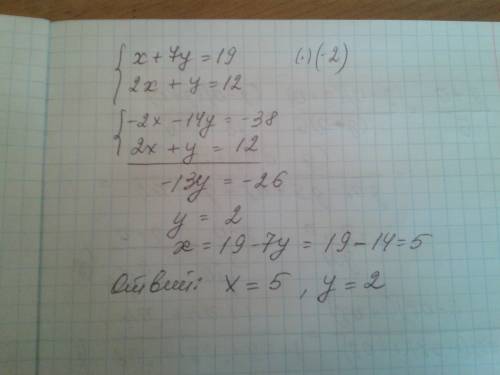 x + 7y = 19 (·)(-2)
2x + y = 12
-2x - 14y = -38
2x + y = 12
-13y = -26
y = 2
x = 19 - 7y = 19 - 14 = 5
Ответ: x = 5 , y = 2